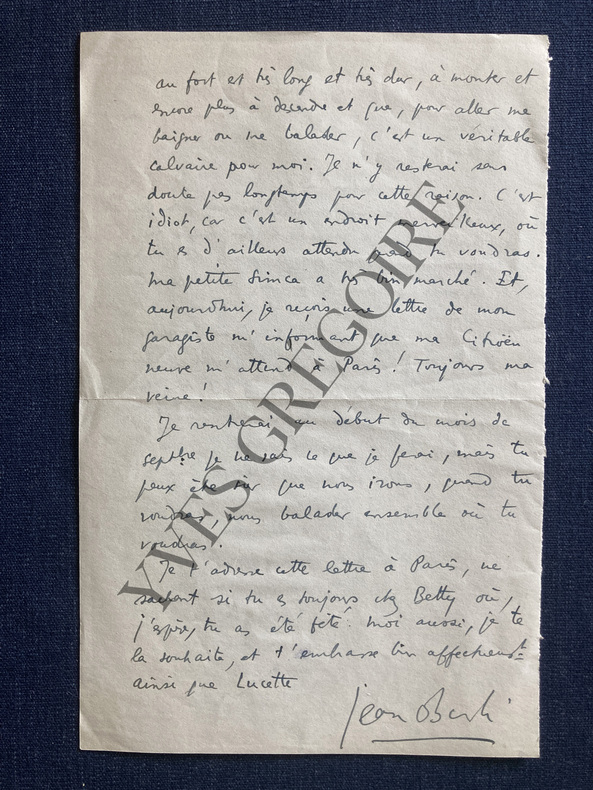 au fort est très long et très dur, à monter et
encore plus à descendre et que, pour aller me
baigner ou me balader, c'est un véritable
calvaire pour moi. Je n'y resterai sans
doute pas longtemps pour cette raison. C'est
idiot, car c'est un endroit merveilleux, où
tu es d'ailleurs attendu quand tu voudras.
Ma petite Simca a très bien marché. Et,
aujourd'hui, je reçois une lettre de mon
garagiste m'informant que ma Citroën
neuve m'attend à Paris ! Toujours ma
veine !
Je rentrerai au début du mois de
septbre je ne sais ce que je ferai, mais tu
peux être sûr que nous irons, quand tu
voudras, nous balader ensemble où tu
voudras.
Je t'adresse cette lettre à Paris, ne
sachant si tu es toujours chez Betty où,
j'espère, tu as été fêté. Moi aussi, je te
la souhaite, et t'embrasse bien affectueust
ainsi que Lucette
Jean
YVES GREGOIRE